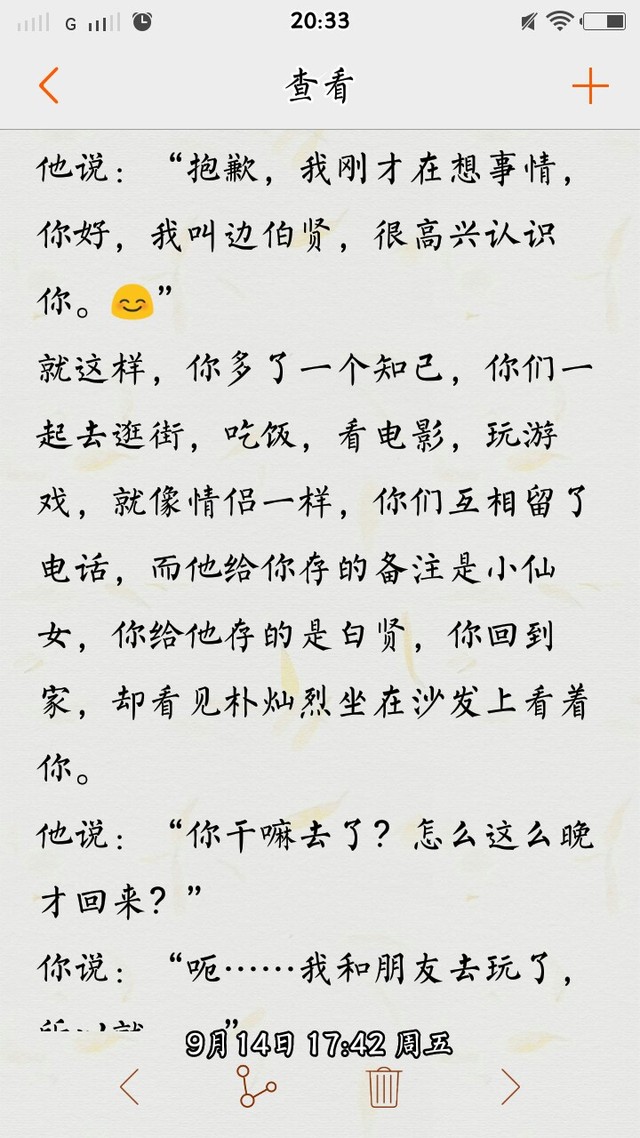 G
20:33
查看
他说：“抱歉，我刚才在想事情，
你好，我叫边伯贤，很高兴认识
你。😊”
就这样，你多了一个知己，你们一
起去逛街，吃饭，看电影，玩游
戏，就像情侣一样，你们互相留了
电话，而他给你存的备注是小仙
女，你给他存的是白贤，你回到
家，却看见朴灿烈坐在沙发上看着
你。
他说：“你干嘛去了？怎么这么晚
才回来？”
你说：“呃……我和朋友去玩了，
9月14日 17:42 周五